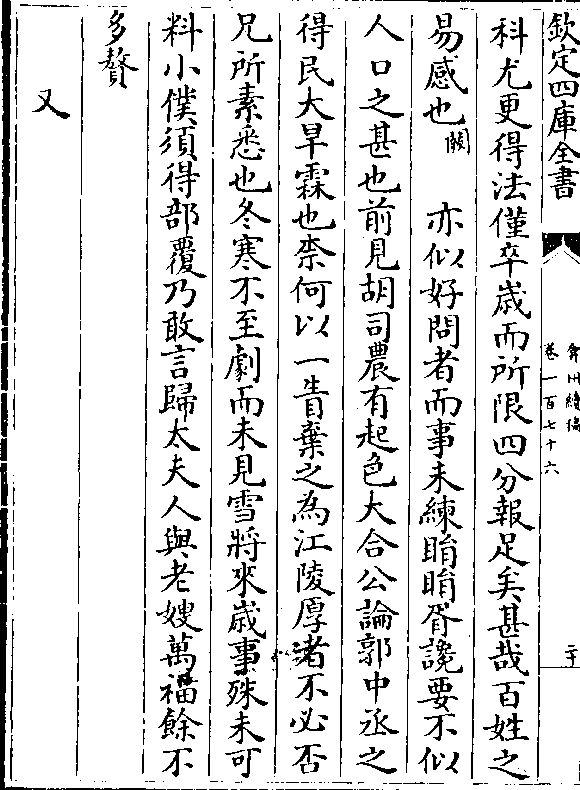 欽定四庫全書
弇州續稿
卷一百七十六
二十
科尤更得法僅卒歲而所限四分報足矣甚哉百姓之
易感也闕　亦似好問者而事未練睊睊胥讒要不似
人口之甚也前見胡司農有起色大合公論郭中丞之
得民大旱霖也柰何以一眚棄之為江陵厚者不必否
兄所素悉也冬寒不至劇而未見雪將來歲事殊未可
料小僕須得部覆乃敢言歸太夫人與老嫂萬福餘不
多贅
又